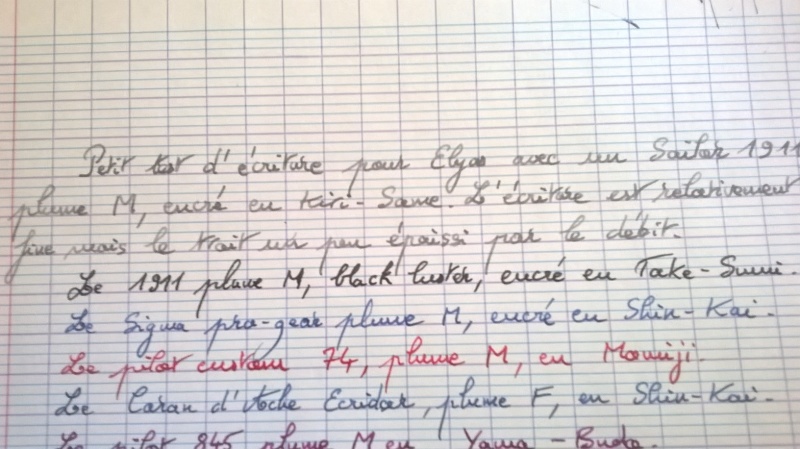 Petit test d'écriture pour Elyas avec un Sailor 1911
plume M, encré en Kiri-Same. L'écriture est relativement
fine mais le trait un peu épaissi par le débit.
Le 1911 plume M, black luster, encré en Take-Sumi.
Le Sigma pro-gear plume M, encré en Shin-Kai.
Le pilot custom 74, plume M, en Momiji.
Le Caran d'Ache Ecridor, plume F, en Shin-Kai.
Le pilot 845 plume M en Yama-Budo.